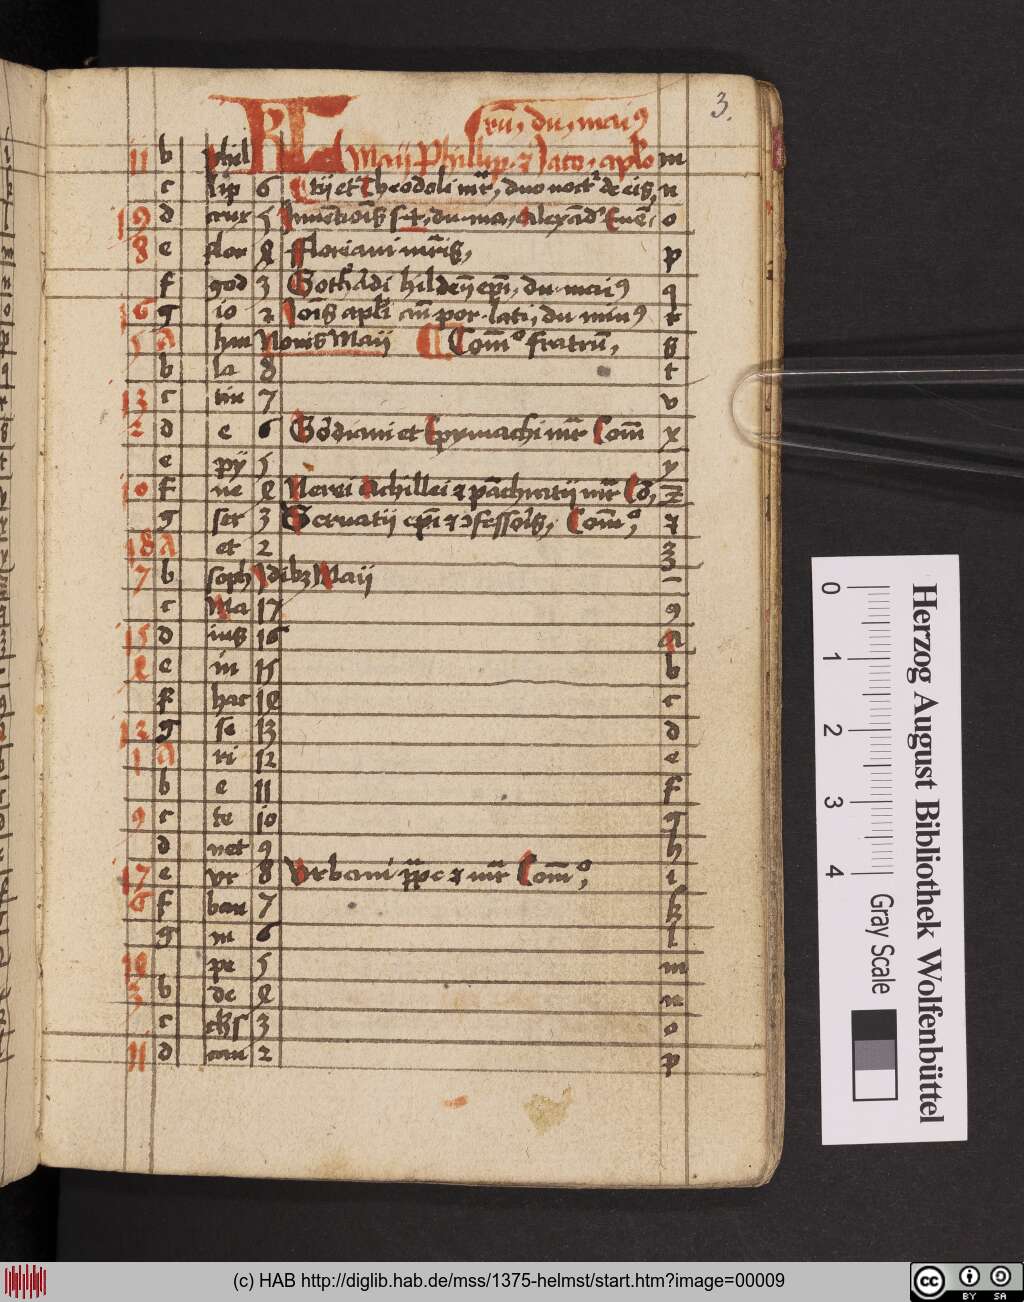 3.
festū, du, maiꝰ
11 b phil KL Maii Philipp. ⁊ Jaco. aplo m
c lip 6 Ctij et Theodoli mr̄, duo noct² de eis n
19 d crux 5 Inuētiōis s. ✝, du. ma, Alexād² Euē. o
8 e flor 4 Floriani mr̄is, p
f god 3 Gothardi hildeñ epī, du. maiꝰ q
16 g io 2 Joīs apli añ por. lati, du. minꝰ r
5 A han Nonis Maij Com̄° fratrū, s
b la 8 t
13 c tin 7 v
2 d e 6 Gōdiani et Epymachi mr̄ Com̄ x
e py 5 y
10 f ne 4 Nerei Achillei ⁊ pāchratij mr̄ Cō, z
g ser 3 Seruatij epī ⁊ ↄfessoris, Com̄°, ⁊
18 A et 2 3
7 b soph Idibꝫ Maij
c Ma 17 9
15 d ius 16 A
4 e in 15 b
f hac 14 c
13 g se 13 d
1 A ri 12 e
b e 11 f
9 c te 10 g
d net 9 h
17 e vr 8 Vrbani ppe ⁊ mr̄ Com̄°, i
6 f ban 7 k
g in 6 l
pe 5 m
3 b de 4 n
c 3 o
11 d can 2 p
0
1
2
3
4
Gray Scale
Herzog August Bibliothek Wolfenbüttel
(c) HAB http://diglib.hab.de/mss/1375-helmst/start.htm?image=00009
cc BY SA